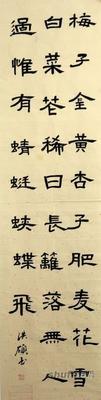 梅子金黄杏子肥麦花雪
白菜花稀日長籬落無人
過惟有蜻蜓蛺蝶飛